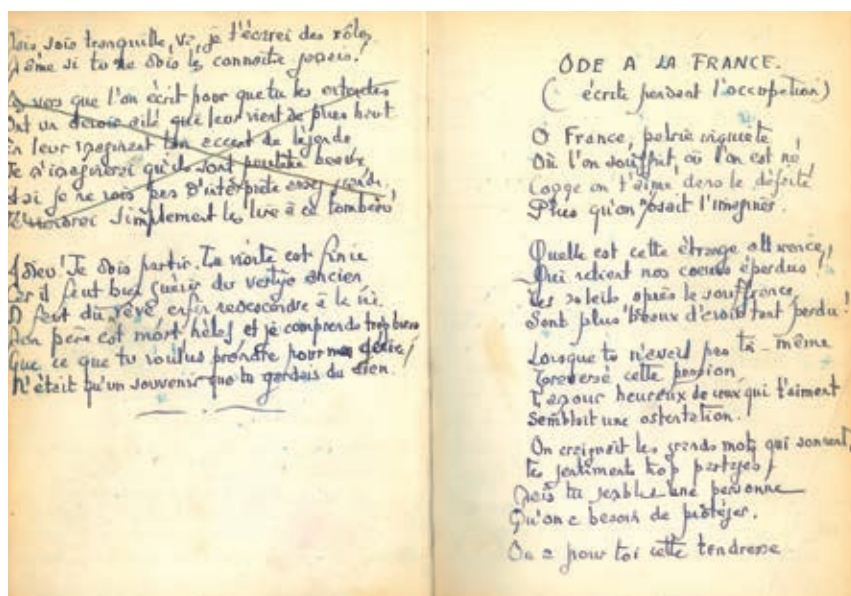 Mais sois tranquille, va, je t'écrirai des rôles
Même si tu ne dois les connaître jamais!
vers que l'on écrit pour que tu les entendes
Ont un devoir ailé qui leur vient de plus haut
En leur imaginant ton accent de légende
Je m'imaginerai qu'ils sont peut-être beaux
si je ne vois pas d'interprète assez
simplement les lire à ce tombeau!
Adieu! Je dois partir. La visite est finie
Car il faut bien guérir du vertige ancien
Il faut du rêve enfin redescendre à la vie
Mon père est mort, hélas! et je comprends très bien
Que ce que tu voulus prendre pour mon génie
N'était qu'un souvenir que tu gardais du sien.
ODE A LA FRANCE.
(écrite pendant l'occupation)
O France, patrie inquiète
Où l'on souffrit, où l'on est né,
Comme on t'aime dans la défaite
Plus qu'on n'osait l'imaginer.
Quelle est cette étrange attirance,
Qui retient nos coeurs éperdus!
Les soleils après la souffrance
Sont plus beaux d'avoir tant perdu!
Lorsque tu n'avais pas toi-même
Traversé cette passion
L'amour heureux de ceux qui t'aiment
Semblait une ostentation.
On craignait les grands mots qui sonnent,
Les sentiments trop partagés,
Mais tu sembles une personne
Qu'on a besoin de protéger.
On a pour toi cette tendresse